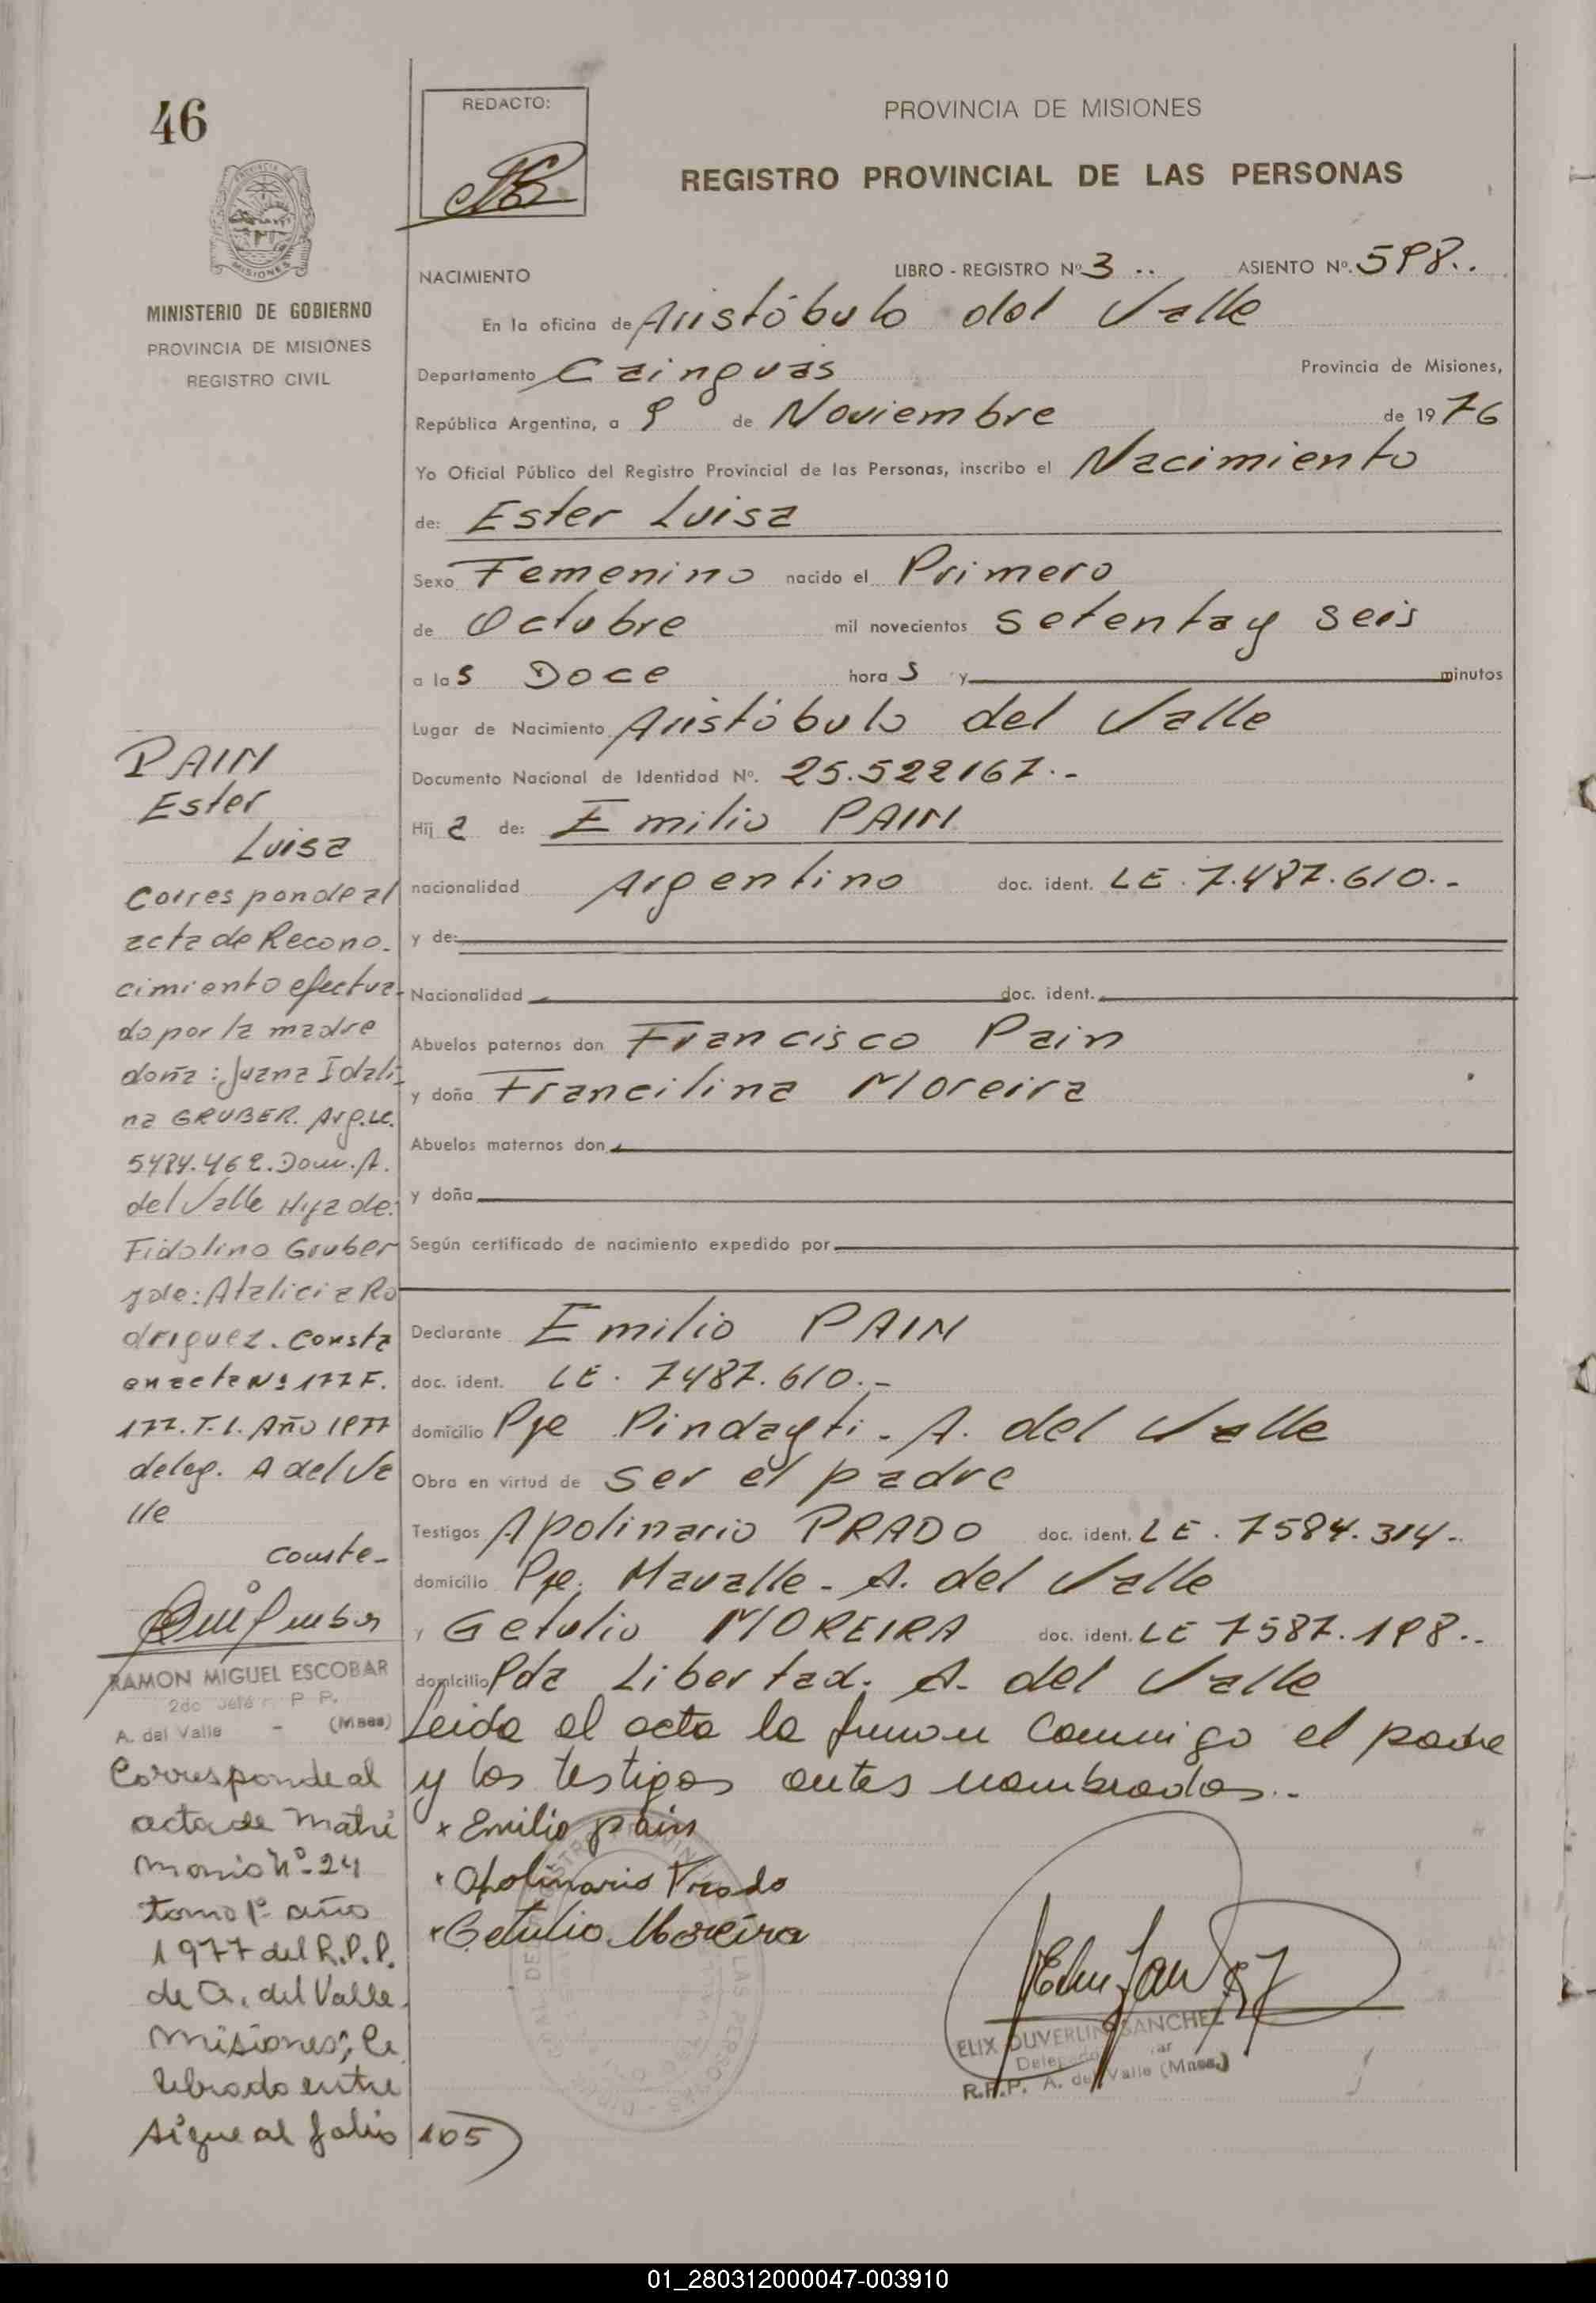 46
REDACTO:
PROVINCIA DE MISIONES
REGISTRO PROVINCIAL DE LAS PERSONAS
MISIONES
MINISTERIO DE GOBIERNO
PROVINCIA DE MISIONES
REGISTRO CIVIL
NACIMIENTO
LIBRO - REGISTRO Nº 3 .. ASIENTO Nº. 598..
En la oficina de Aristóbulo del Valle
Departamento Cainguás Provincia de Misiones,
República Argentina, a 9 de Noviembre de 1976
Yo Oficial Público del Registro Provincial de las Personas, inscribo el Nacimiento
de: Ester Luisa
Sexo Femenino nacido el Primero
de Octubre mil novecientos setenta y seis
a las Doce horas y minutos
Lugar de Nacimiento Aristóbulo del Valle
Documento Nacional de Identidad Nº. 25.522167.-
Hija de: Emilio PAIN
nacionalidad Argentino doc. ident. LE. 7.487.610.-
y de:
Nacionalidad doc. ident.
Abuelos paternos don Francisco Pain
y doña Francilina Moreira
Abuelos maternos don
y doña
Según certificado de nacimiento expedido por
Declarante Emilio PAIN
doc. ident. LE. 7487.610.-
domicilio Pje Pindayti - A. del Valle
Obra en virtud de ser el padre
Testigos Apolinario PRADO doc. ident. LE. 7584.314-
domicilio Pje. Mavalle - A. del Valle
y Getulio MOREIRA doc. ident. LE 7587.198..
domicilio Pda Libertad. A. del Valle
Leida el acta la firman conmigo el padre
y los testigos antes nombrados.-
x Emilio pain
x Apolinario Prado
x Getulio Moreira
ELIX DUVERLIN SANCHEZ
R.P.P. A. del Valle (Mnes.)
PAIN
Ester
Luisa
Corresponde al
acta de Recono-
cimiento efectua-
do por la madre
doña: Juana Idali-
na GRUBER. Arg. LC.
5484.462. Dom. A.
del Valle Hija de:
Fidolino Gruber
y de: Atalicia Ro
driguez. Consta
en acta Nº 177 F.
177. T. 1. Año 1977
deleg. A del Va
lle
conste-
RAMON MIGUEL ESCOBAR
2do Jefe R P P.
A. del Valle - (Mnes)
Corresponde al
acta de Matri
monio Nº 24
tomo 1º año
1977 del R.P.P.
de A. del Valle.
Misiones; Ce
lebrado entre
sigue al folio 105)
01_280312000047-003910